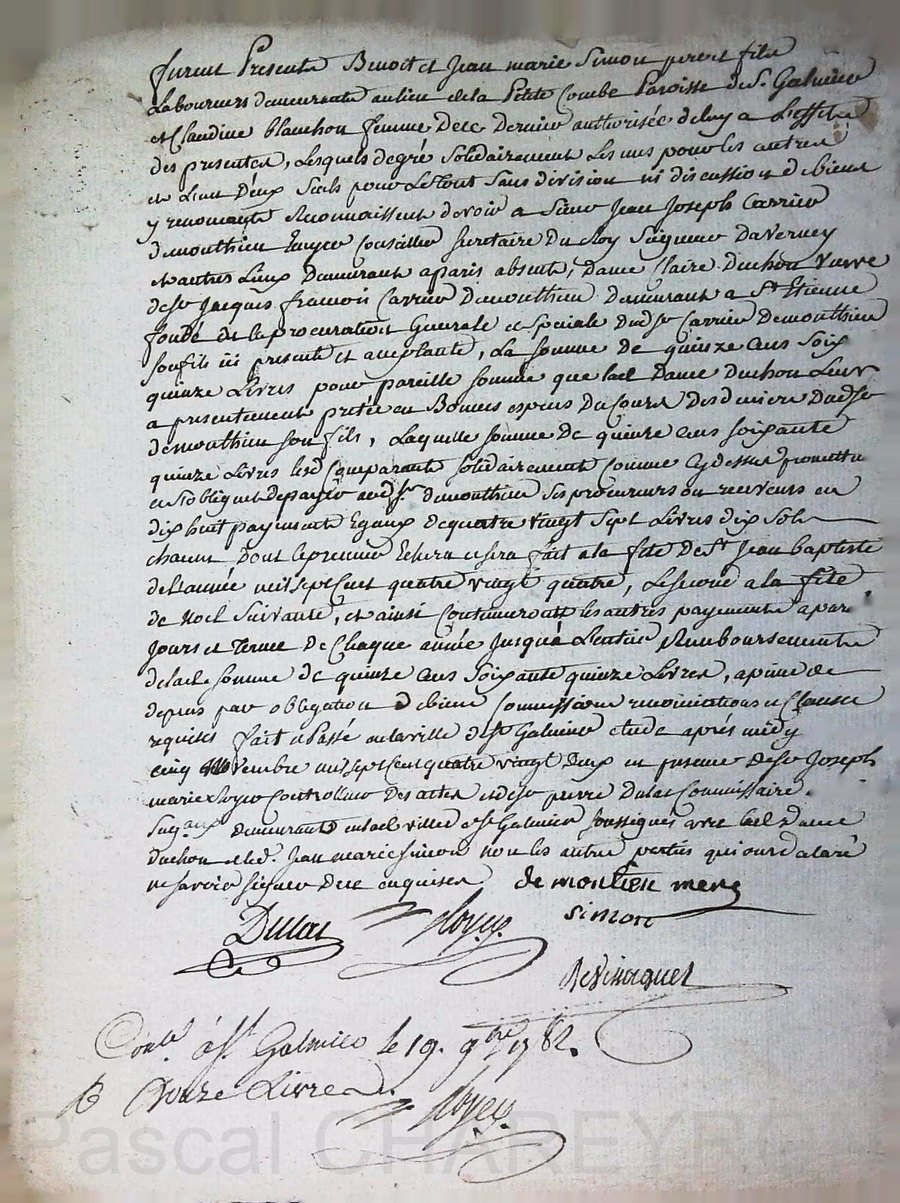 furent Presents Benoit et Jean marie Simon pere et fils
Laboureurs demeurants au lieu de la Petite Combe Paroisse de St. Galmier
et Claudine blanchon femme de ce dernier authorisée de luy a L'effet
des presentes, Lesquels de gré solidairement les uns pour les autres
et L'un d'Eux seul pour Le tout sans division ni discussion de biens
y renonçants Reconnaissent devoir a Sieur Jean Joseph Carrier
demonthieu Ecuyer Conseiller Secretaire du Roy Seigneur Daverney
et autres Lieux Demeurant a paris absent, Dame Claire Duchon Veuve
de Sr. Jacques francois Carrier Demonthieu Demeurant a St. Etienne
fondé de la procuration Generale et Speciale dud. Sr. Carrier Demonthieu
son fils ici presente et acceptante, La somme de quinze cens soix
quinze Livres pour pareille somme que lad. Dame Duchon Leur
a presentement pretée en Bonnes especes Du Cours des deniers dud. Sr.
demonthieu son fils, Laquelle somme de quinze cens soixante
quinze Livres lesd. Comparants solidairement comme cy dessus promettent
et s'obligent de payer aud. Sr. demonthieu ses procureurs ou receveurs en
dix huit payements Egaux de quatre vingt sept Livres dix sols
chacun dont le premier Echera et sera fait a la fête de St. Jean baptiste
de l'année mil sept cent quatre vingt quatre, Le second a la fête
de Noel Suivante, et ainsi Continueront les autres payements a pareils
Jours et Terme de Chaque année Jusqu'a L'entier Remboursement
de lad. somme de quinze cens soixante quinze Livres, a peine de
depens par obligation de biens Commissions renonciations et Clauses
requises fait et Passé en la ville de St. Galmier etude après midy
cinq Novembre mil sept cent quatre vingt deux en presence de Sr. Joseph
marie Royer Controlleur des actes et de Sr. pierre Dulac Commissaire
demeurants en lad. ville de St. Galmier soussignés avec lad. Dame
duchon et led. Jean marie simon non les autres parties qui ont declaré
ne savoir signer de ce enquises de montieu mere
simon
Dulac Royer
Contlé. à St. Galmier le 19. 9bre 1782.
R Douze Livres
Royer
Pascal CHAREYRE